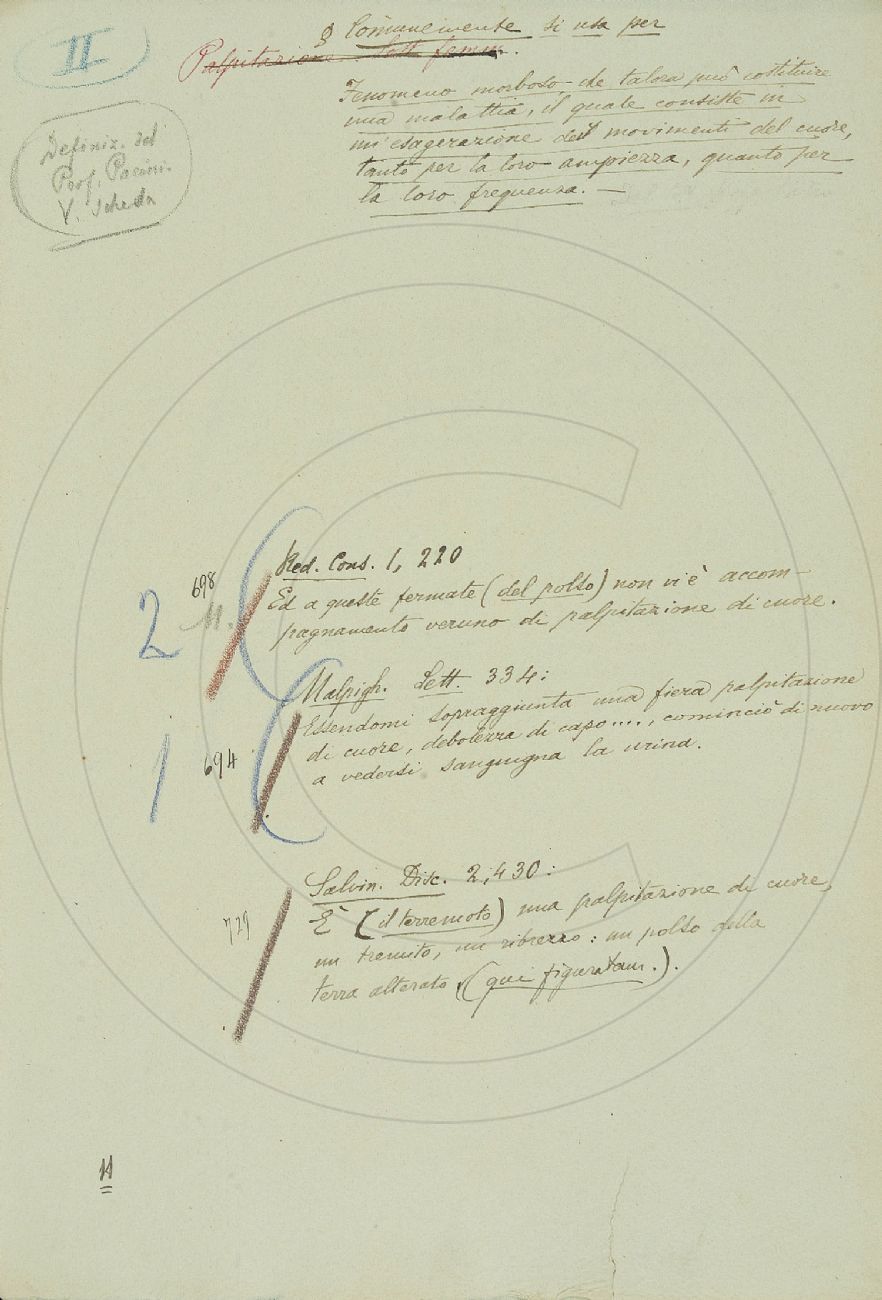 II
§ Comunemente si usa per
Palpitazione Sost. femm.
Fenomeno morboso, che talora può costituire
una malattia, il quale consiste in
un'esagerazione dei movimenti del cuore,
tanto per la loro ampiezza, quanto per
la loro frequenza. —
Definiz. del
Prof. Pacini.
V. Scheda
Red. Cons. 1, 220
698
2
M.
Ed a queste fermate (del polso) non vi è accom-
pagnamento veruno di palpitazione di cuore.
Malpigh. Lett. 334:
Essendomi sopraggiunta una fiera palpitazione
di cuore, debolezza di capo...., cominciò di nuovo
a vedersi sanguigna la urina.
1
694
Salvin. Disc. 2, 430:
729
È (il terremoto) una palpitazione di cuore,
un tremito, un ribrezzo: un polso della
terra alterato (qui figuratam.).
11